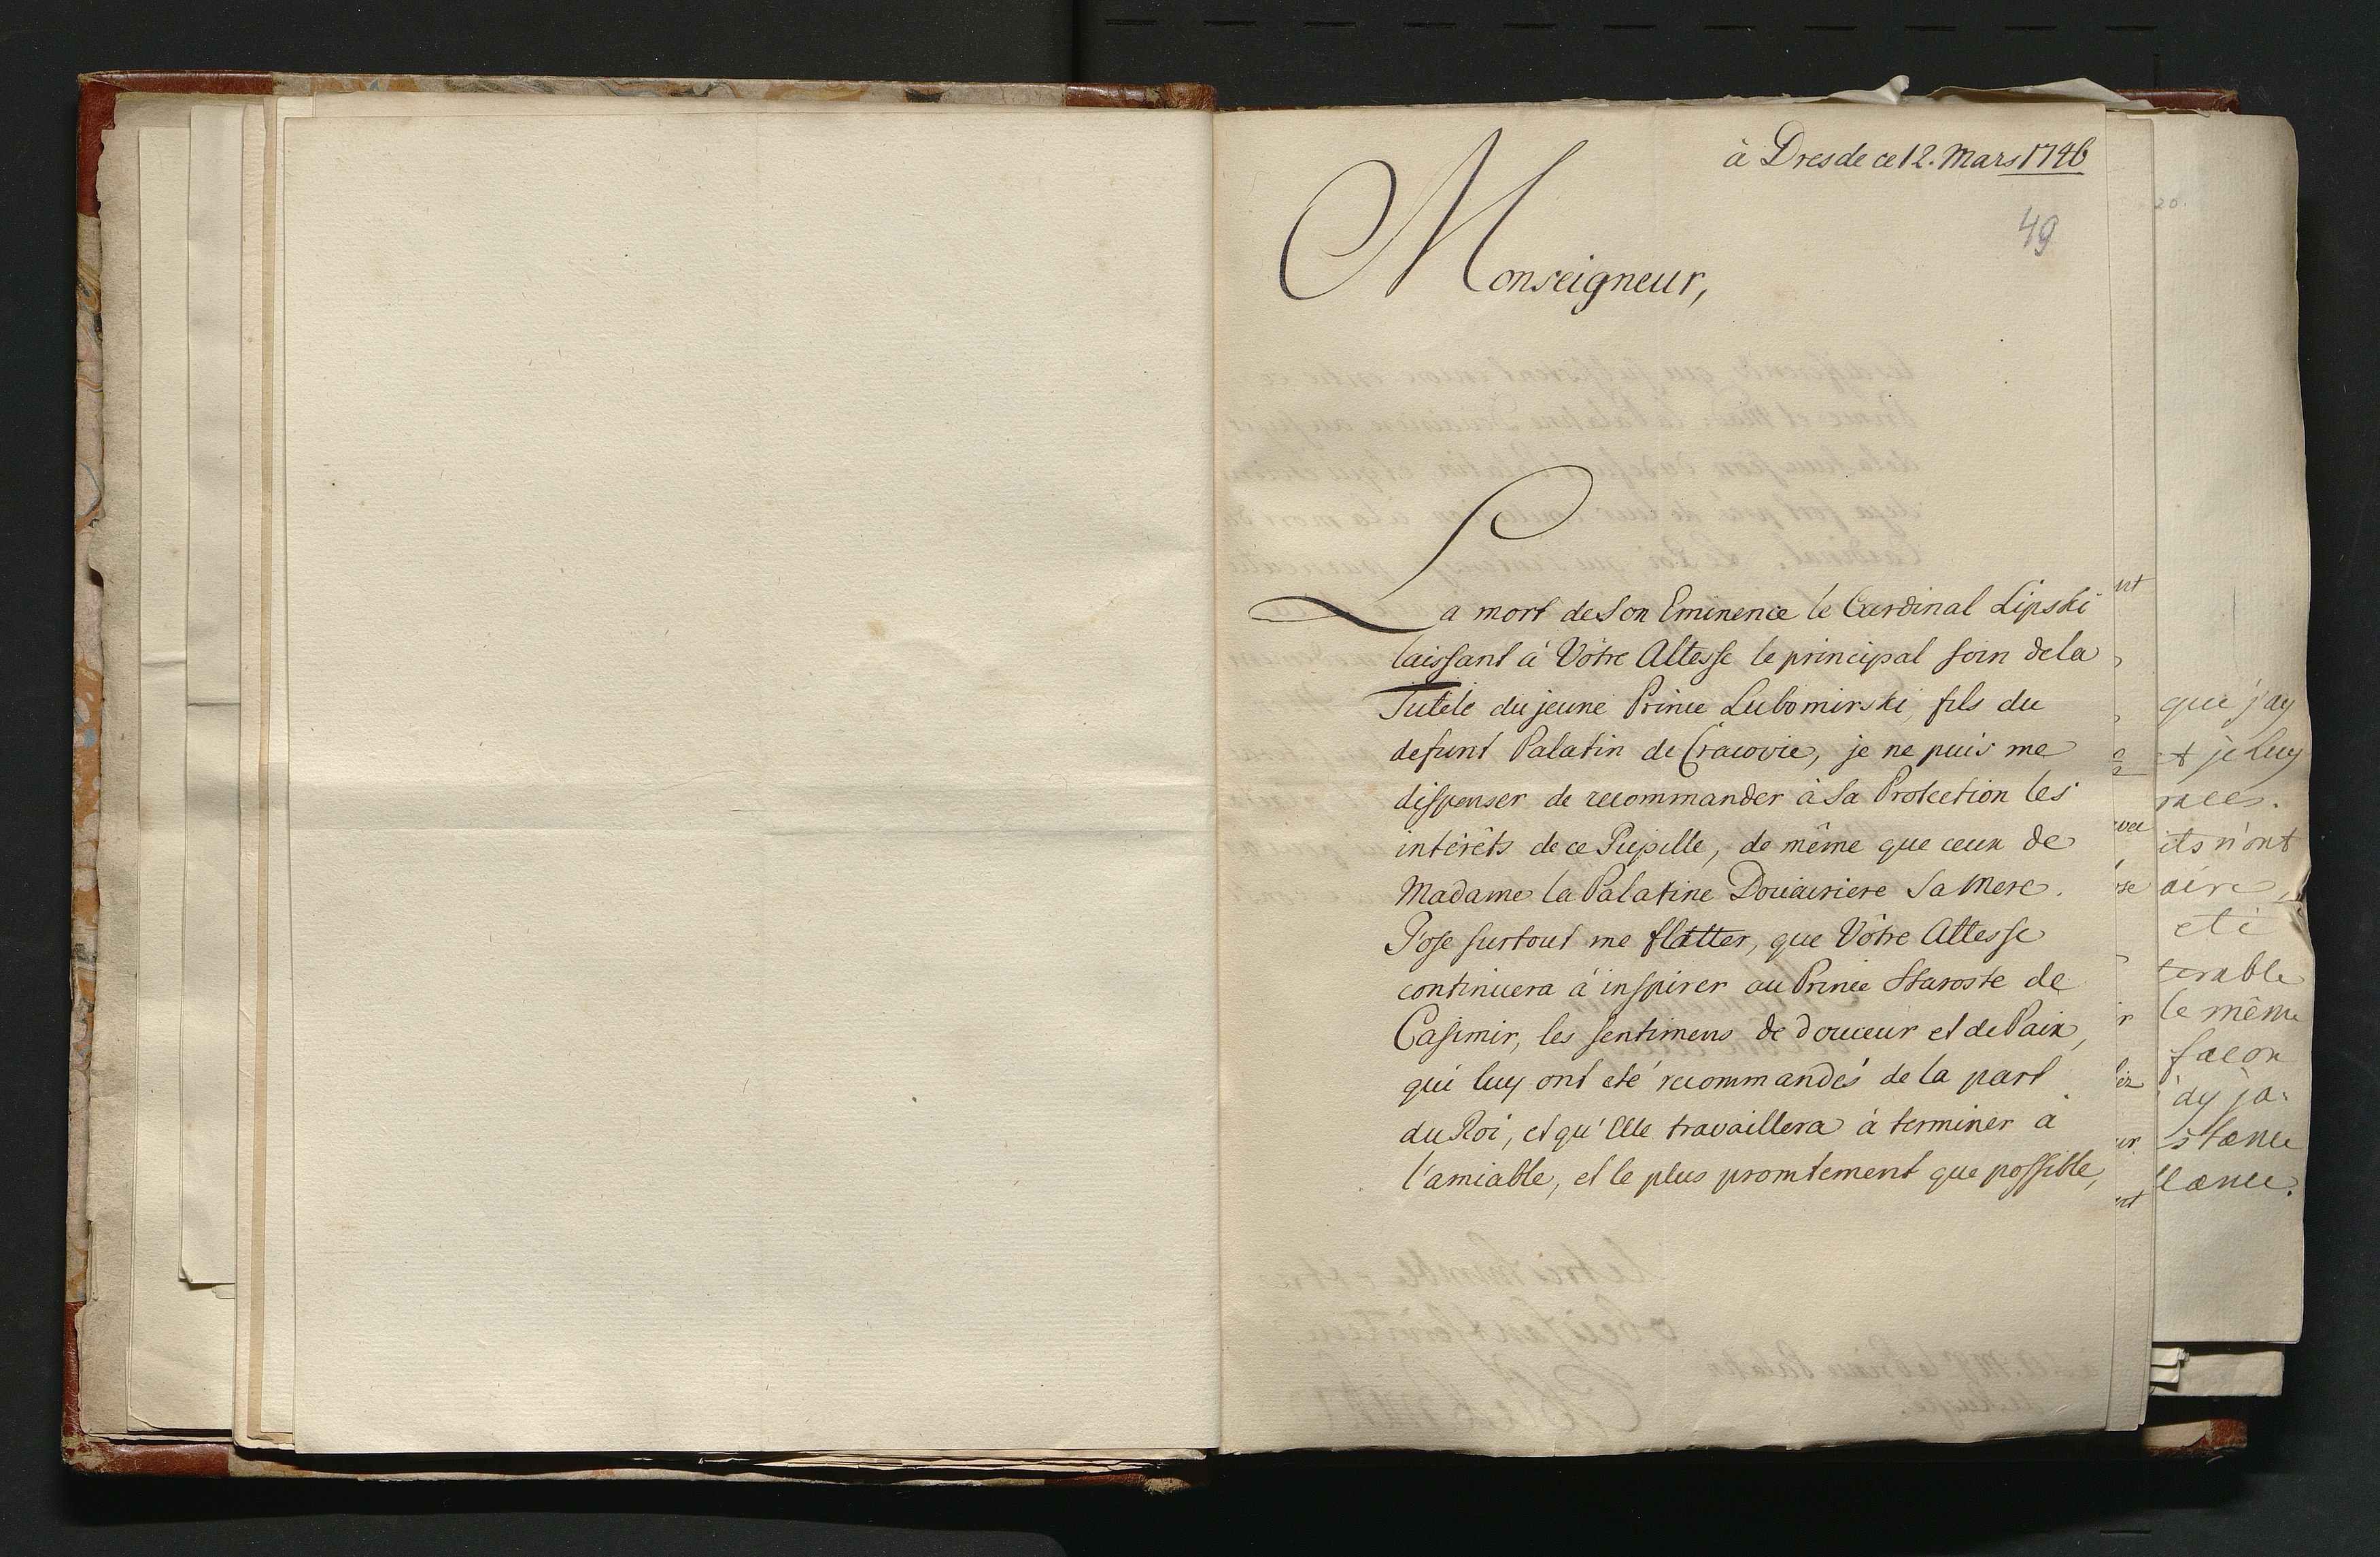 à Dresde ce 12. Mars 1746
49
Monseigneur,
La mort de Son Eminence le Cardinal Lipski
laissant à Vôtre Altesse le principal soin dela
Tutele du jeune Prince Lubomirski, fils du
defunt Palatin de Cracovie, je ne puis me
dispenser de recommander à Sa Protection les
intérêts de ce Pupille, de même que ceux de
Madame la Palatine Douairiere Sa Mere.
J'ose surtout me flatter, que Vôtre Altesse
continuera à inspirer au Prince Staroste de
Casimir, les sentimens de douceur et de Paix,
qui luy ont eté recommandés de la part
du Roi, et qu'Elle travaillera à terminer à
l'amiable, et le plus promtement que possible,
20.
que j'ay
et je luy
ils n'ont
aire,
eté
le même
façon